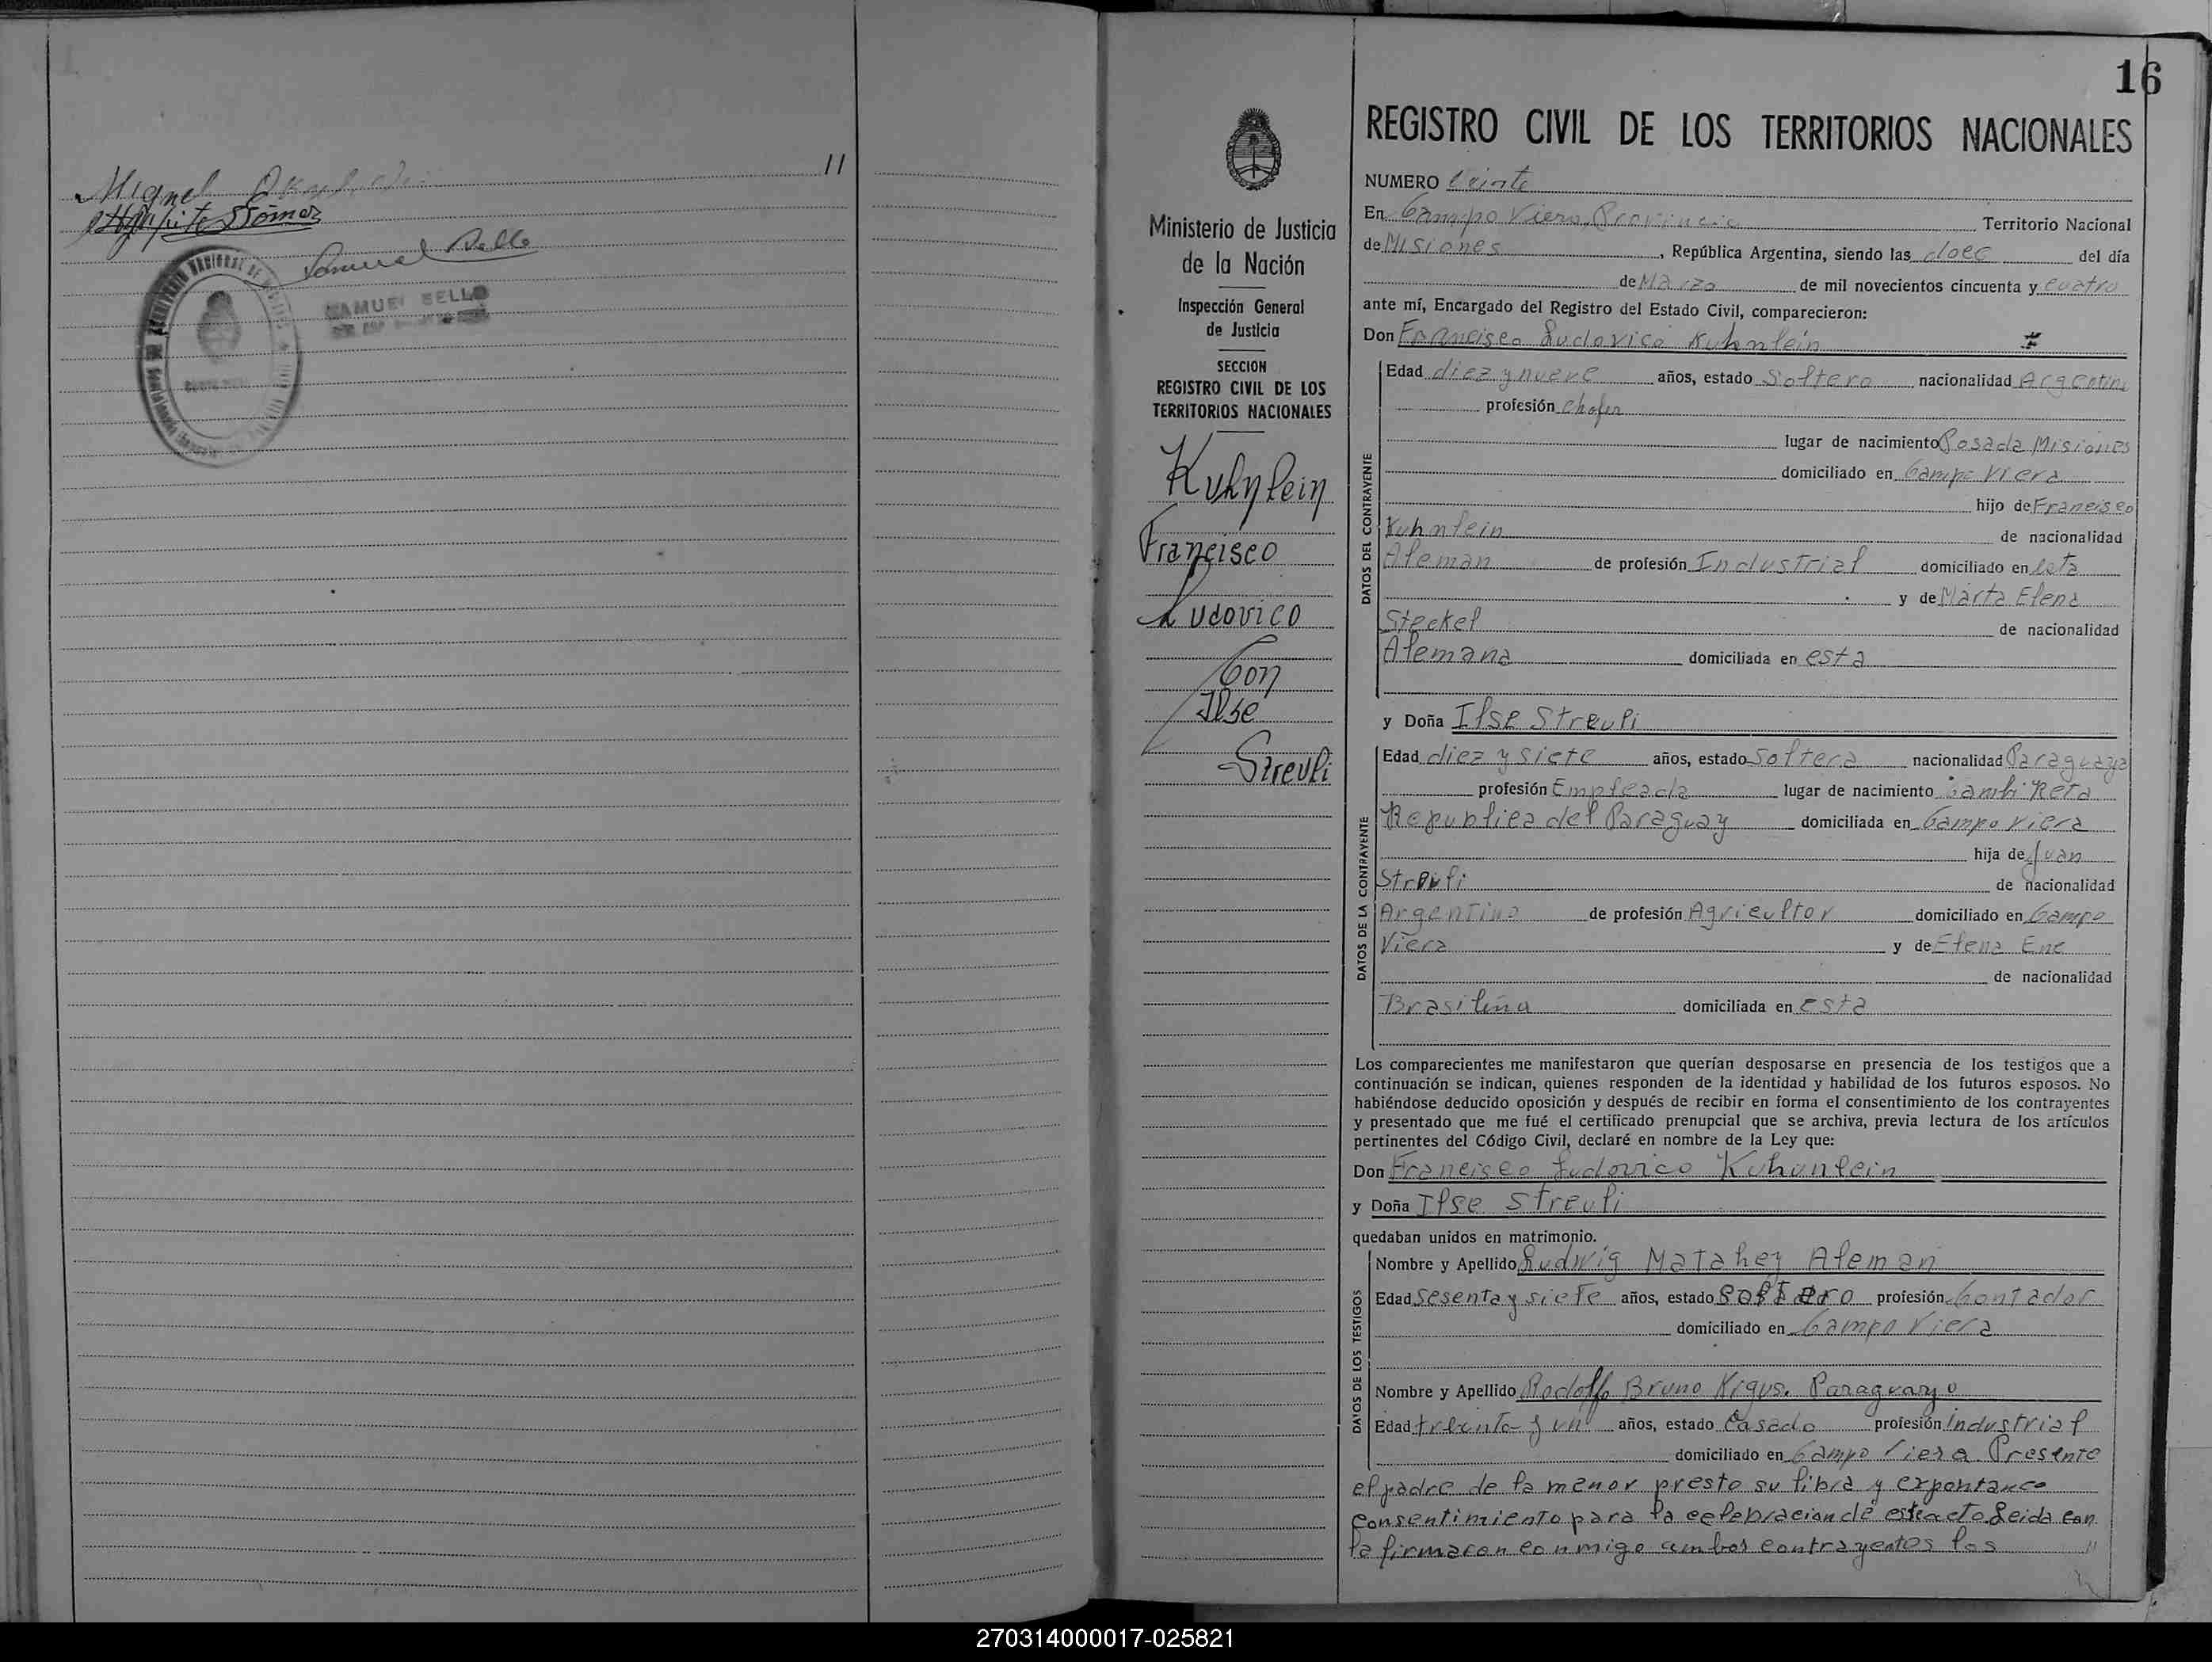 11
Miguel
Gómez
Samuel Bello
SAMUEL BELLO
16
Ministerio de Justicia
de la Nación
Inspección General
de Justicia
SECCION
REGISTRO CIVIL DE LOS
TERRITORIOS NACIONALES
Kuhnlein
Francisco
Ludovico
Con
Ilse
Streuli
REGISTRO CIVIL DE LOS TERRITORIOS NACIONALES
NUMERO Veinte
En Campo Viera Provincia Territorio Nacional
de Misiones, República Argentina, siendo las doce del día
de Marzo de mil novecientos cincuenta y cuatro
ante mí, Encargado del Registro del Estado Civil, comparecieron:
Don Francisco Ludovico Kuhnlein
DATOS DEL CONTRAYENTE
Edad diez y nueve años, estado Soltero nacionalidad Argentina
profesión chofer
lugar de nacimiento Posada Misiones
domiciliado en Campo Viera
hijo de Francisco
Kuhnlein de nacionalidad
Aleman de profesión Industrial domiciliado en
y de Marta Elena
Steckel de nacionalidad
Alemana domiciliada en esta
y Doña Ilse Streuli
DATOS DE LA CONTRAYENTE
Edad diez y siete años, estado Soltera nacionalidad Paraguaya
profesión Empleada lugar de nacimiento
Republica del Paraguay domiciliada en Campo Viera
hija de Juan
Streuli de nacionalidad
Argentino de profesión Agricultor domiciliado en Campo
Viera y de Elena Ene
de nacionalidad
Brasileña domiciliada en esta
Los comparecientes me manifestaron que querían desposarse en presencia de los testigos que a
continuación se indican, quienes responden de la identidad y habilidad de los futuros esposos. No
habiéndose deducido oposición y después de recibir en forma el consentimiento de los contrayentes
y presentado que me fué el certificado prenupcial que se archiva, previa lectura de los artículos
pertinentes del Código Civil, declaré en nombre de la Ley que:
Don Francisco Ludovico Kuhunlein
y Doña Ilse Streuli
quedaban unidos en matrimonio.
DATOS DE LOS TESTIGOS
Nombre y Apellido Ludwig Matahey Aleman
Edad Sesenta y siete años, estado Soltero profesión Contador
domiciliado en Campo Viera
Nombre y Apellido Rodolfo Bruno Paraguayo
Edad treinta y un años, estado Casado profesión industrial
domiciliado en Campo Viera. Presente
el padre de la menor presto su libre y expontaneo
consentimiento para la celebracion de este acto. Leida con
la firmaron conmigo ambos contrayentes los "
270314000017-025821